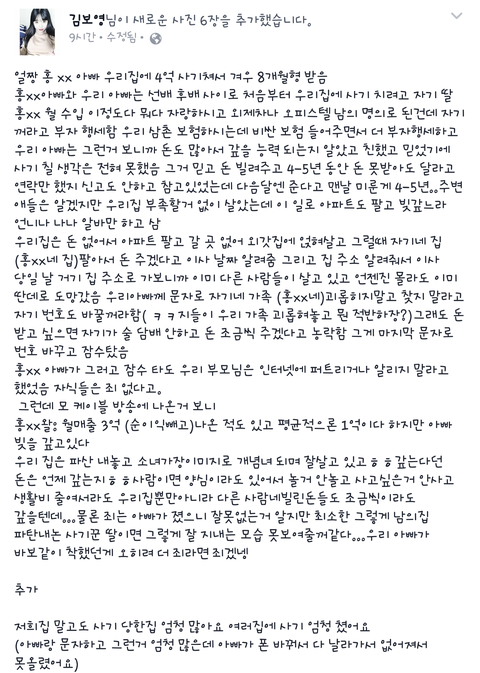 김보영님이 새로운 사진 6장을 추가했습니다.
9시간 · 수정됨 ·
얼짱 홍 xx 아빠 우리집에 4억 사기쳐서 겨우 8개월형 받음
홍xx아빠와 우리 아빠는 선배 후배 사이로 처음부터 우리집에 사기 치려고 자기 딸
홍xx 월 수입 이정도다 뭐다 자랑하시고 외제차나 오피스텔 남의 명의로 된건데 자기
꺼라고 부자 행세함 우리 삼촌 보험하시는데 비싼 보험 들어주면서 더 부자행세하고
우리 아빠는 그런거 보니까 돈도 많아서 갚을 능력 되는지 알았고 친했고 믿었기에
사기 칠 생각은 전혀 못했음 그거 믿고 돈 빌려주고 4-5년 동안 돈 못받아도 달라고
연락만 했지 신고도 안하고 참고있었는데 다음달엔 준다고 맨날 미룬게 4-5년,,주변
애들은 알겠지만 우리집 부족할거 없이 살았는데 이 일로 아파트도 팔고 빚갚느라
언니나 나나 알바만 하고 삼
우리집은 돈 없어서 아파트 팔고 갈 곳 없어 외갓집에 얹혀살고 그럴때 자기네 집
(홍xx네 집)팔아서 돈 주겠다고 이사 날짜 알려줌 그리고 집 주소 알려줘서 이사
당일 날 거기 집 주소로 가보니까 이미 다른 사람들이 살고 있고 언젠진 몰라도 이미
딴데로 도망갔음 우리아빠께 문자로 자기네 가족 (홍xx네)괴롭히지말고 찾지 말라고
자기 번호도 바꿀꺼라함( ㅋㅋ지들이 우리 가족 괴롭혀놓고 뭔 적반하장?)그래도 돈
받고 싶으면 자기가 술 담배 안하고 돈 조금씩 주겠다고 농락함 그게 마지막 문자로
번호 바꾸고 잠수탔음
홍xx 아빠가 그러고 잠수 타도 우리 부모님은 인터넷에 퍼트리거나 알리지 말라고
했었음 자식들은 죄 없다고,
그런데 모 케이블 방송에 나온거 보니
홍xx왈: 월매출 3억 (순이익빼고)나온 적도 있고 평균적으론 1억이다 하지만 아빠
빚을 갚고있다
우리 집은 파산 내놓고 소녀가장이미지로 개념녀 되며 잘살고 있고ㅎㅎ갚는다던
돈은 언제 갚는지ㅎㅎ사람이면 양심이라도 있어서 놀거 안놀고 사고싶은거 안사고
생활비 줄여서라도 우리집뿐만아니라 다른 사람네빌린돈들도 조금씩이라도
갚을텐데,,,물론 죄는 아빠가 졌으니 잘못없는거 알지만 최소한 그렇게 남의집
파탄내논 사기꾼 딸이면 그렇게 잘 지내는 모습 못보여줄꺼같다,,,우리 아빠가
바보같이 착했던게 오히려 더 죄라면 죄겠넹
추가
저희집 말고도 사기 당한집 엄청 많아요 여러집에 사기 엄청 쳤어요
(아빠랑 문자하고 그런거 엄청 많은데 아빠가 폰 바꿔서 다 날라가서 없어져서
못올렸어요)